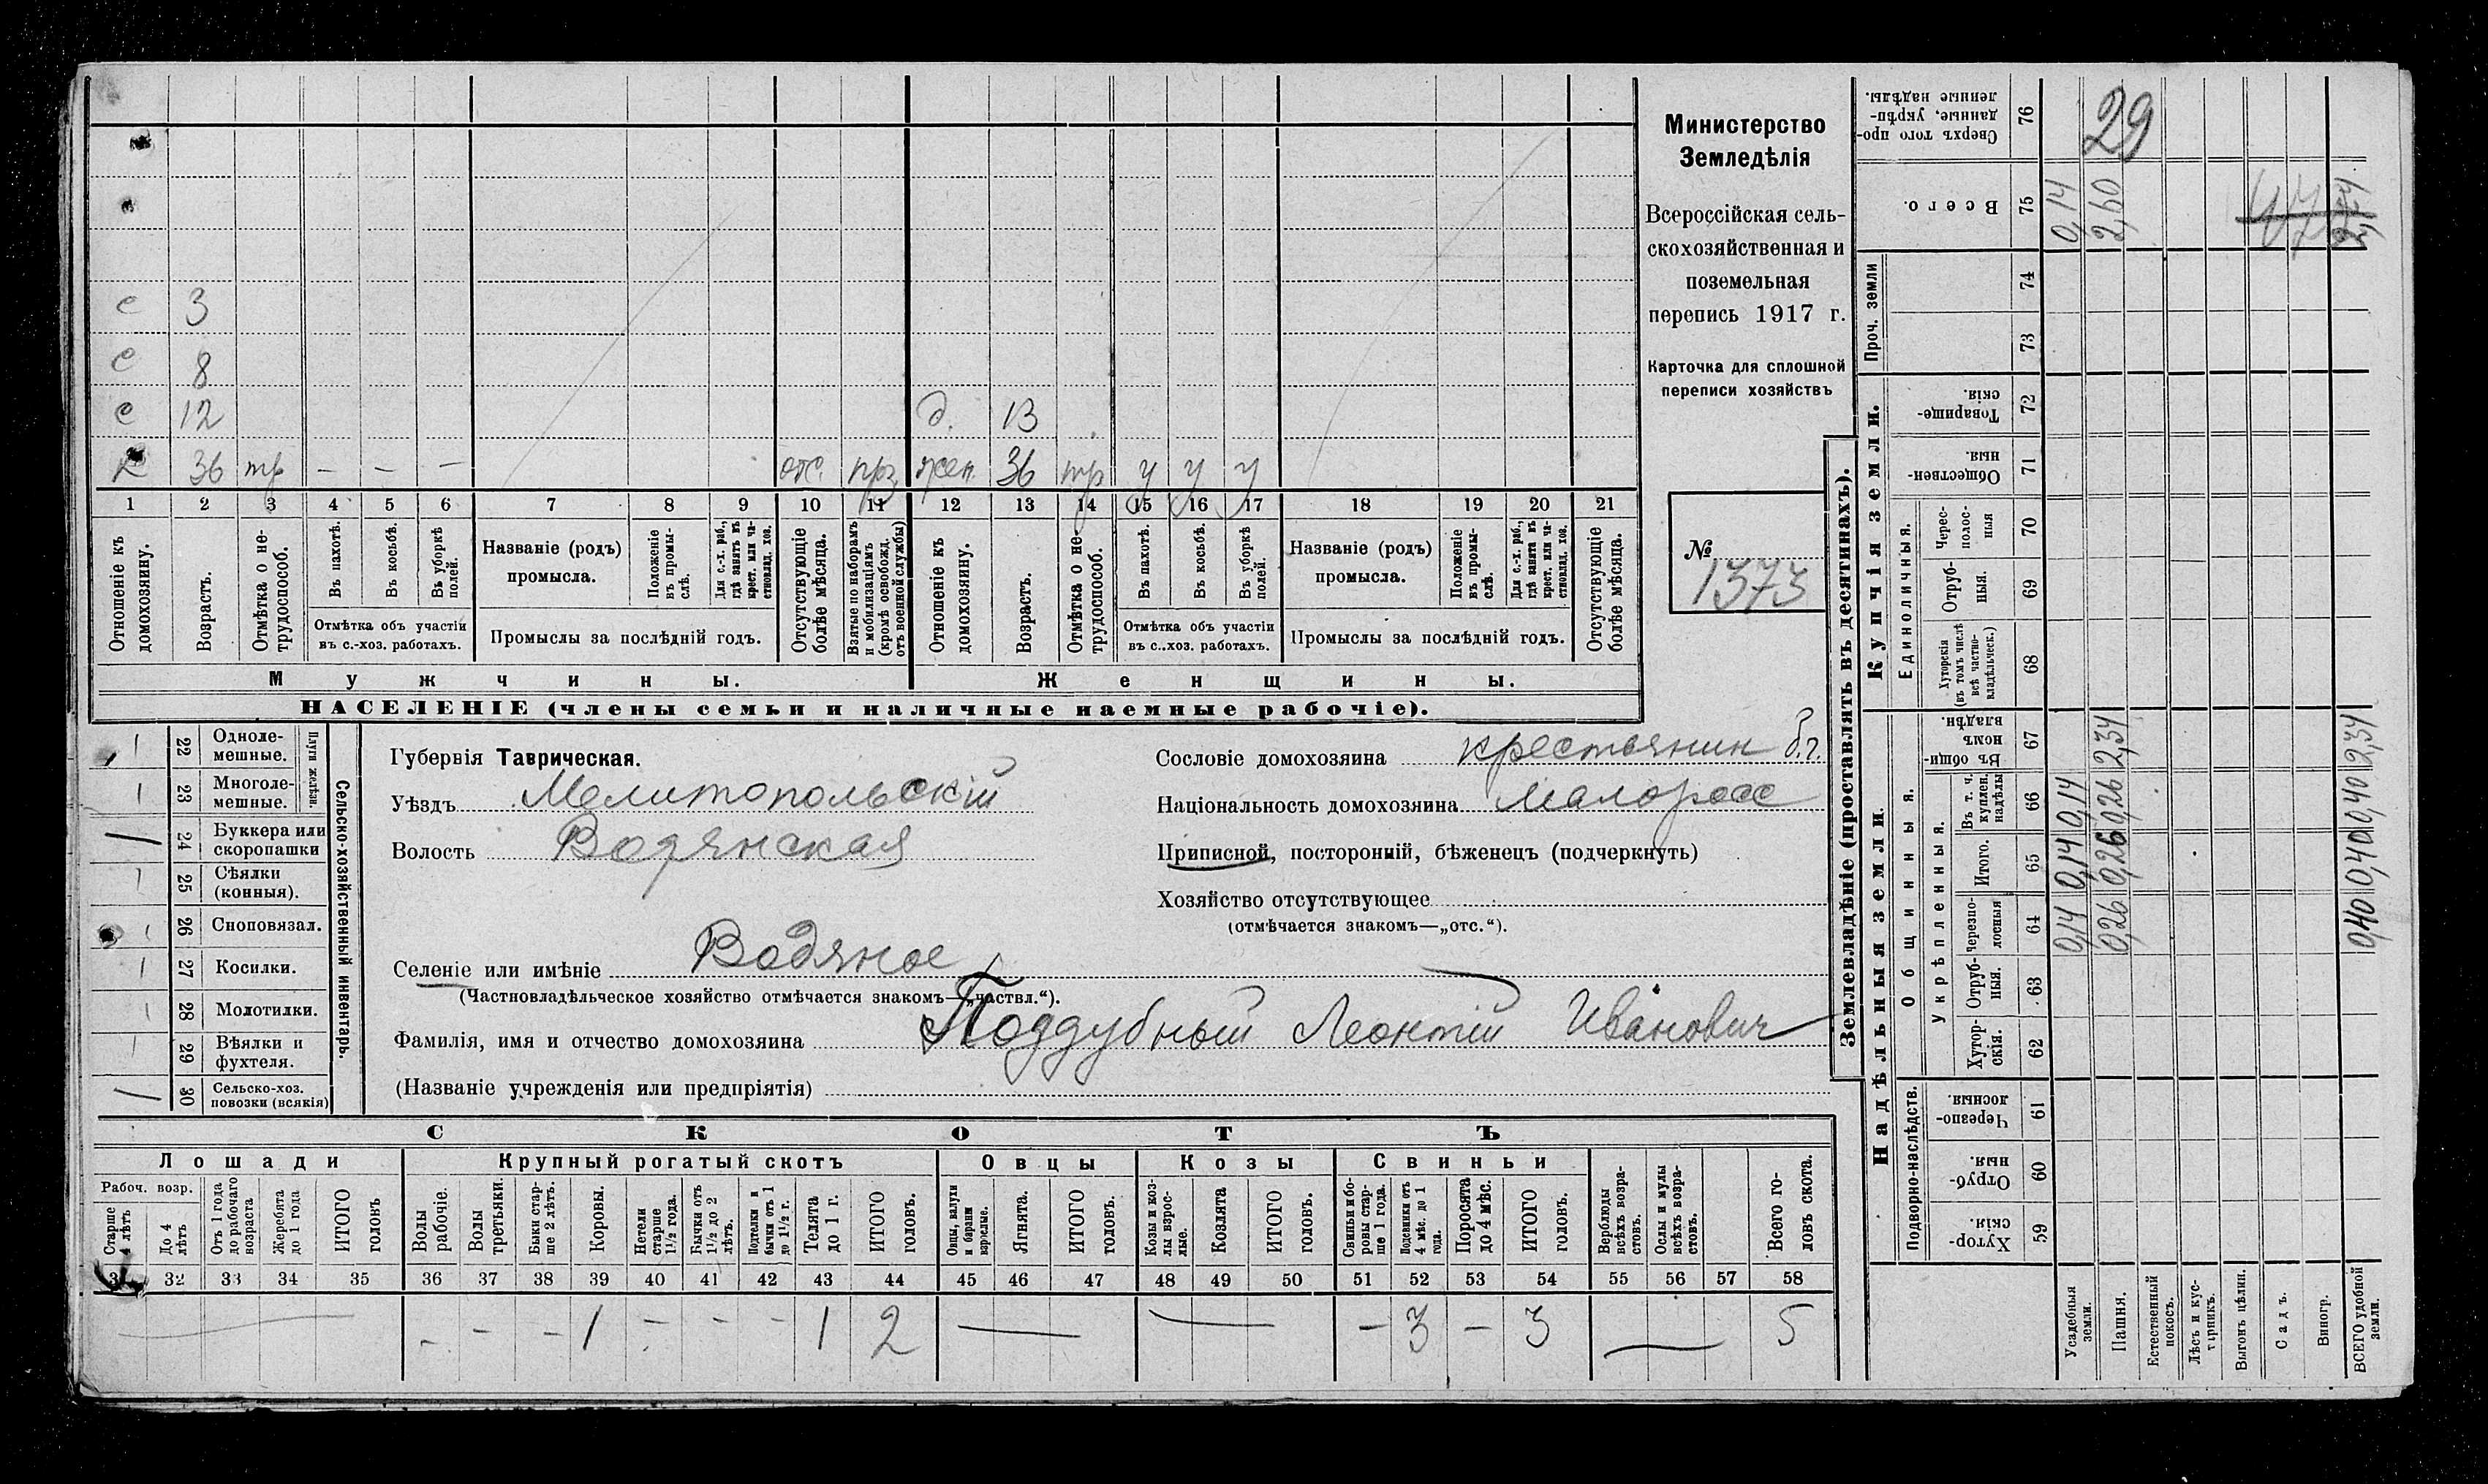 с 3
с 8
с 12 д. 13
х 36 тр — — — отс. прз жен. 36 тр у у у
1 2 3 4 5 6 7 8 9 10 11 12 13 14 15 16 17 18 19 20 21
Отношеніе къ домохозяину.
Возрастъ.
Отмѣтка о не-трудоспособ.
Въ пахотѣ.
Въ косьбѣ.
Въ уборкѣ полей.
Отмѣтка объ участіи
въ с.-хоз. работахъ.
Названіе (родъ)
промысла.
Положеніе въ промы-слѣ.
Для с.-х. раб., гдѣ занятъ въ крест. или ча-стновлад. хоз.
Промыслы за послѣдній годъ.
Отсутствующіе болѣе мѣсяца.
Взятые по наборамъ и мобилизаціямъ (кромѣ освобожд. отъ военной службы)
Отношеніе къ домохозяину.
Возрастъ.
Отмѣтка о не-трудоспособ.
Въ пахотѣ.
Въ косьбѣ.
Въ уборкѣ полей.
Отмѣтка объ участіи
въ с..хоз. работахъ.
Названіе (родъ)
промысла.
Положеніе въ промы-слѣ.
Для с.-х. раб., гдѣ занята въ крест. или ча-стновлад. хоз.
Промыслы за послѣдній годъ.
Отсутствующіе болѣе мѣсяца.
Мужчины. Женщины.
НАСЕЛЕНІЕ (члены семьи и наличные наемные рабочіе).
Министерство
Земледѣлія
Всероссійская сель-
скохозяйственная и
поземельная
перепись 1917 г.
Карточка для сплошной
переписи хозяйствъ
№
1373
Сельско-хозяйственный инвентарь.
Плуги желѣзн.
22 Одноле-мешные.
23 Многоле-мешные.
24 Буккера или скоропашки
25 Сѣялки (конныя).
26 Сноповязал.
27 Косилки.
28 Молотилки.
29 Вѣялки и фухтеля.
30 Сельско-хоз. повозки (всякія)
Губернія Таврическая.
Уѣздъ Мелитопольскій
Волость Водянская
Селеніе или имѣніе Водяное
(Частновладѣльческое хозяйство отмѣчается знакомъ—„частвл.“).
Фамилія, имя и отчество домохозяина Поддубный Леонтій Иванович
(Названіе учрежденія или предпріятія)
Сословіе домохозяина крестьянин б.г.
Національность домохозяина Малоросс
Приписной, посторонній, бѣженецъ (подчеркнуть)
Хозяйство отсутствующее
(отмѣчается знакомъ—„отс.“).
СКОТЪ
Лошади Крупный рогатый скотъ Овцы Козы Свиньи
Рабоч. возр.
Старше 4 лѣтъ
До 4 лѣтъ
Отъ 1 года до рабочаго возраста
Жеребята до 1 года
ИТОГО головъ
Волы рабочіе.
Волы третьяки.
Быки стар-ше 2 лѣтъ.
Коровы.
Нетели старше 1½ года.
Бычки отъ 1½ до 2 лѣтъ.
Подтелки и бычки отъ 1 до 1½ г.
Телята до 1 г.
ИТОГО головъ.
Овцы, валухи и бараны взрослые.
Ягнята.
ИТОГО головъ.
Козы и коз-лы взрос-лые.
Козлята
ИТОГО головъ.
Свиньи и бо-ровы стар-ше 1 года.
Подсвинки отъ 4 мѣс. до 1 года.
Поросята до 4 мѣс.
ИТОГО головъ.
Верблюды всѣхъ возра-стовъ.
Ослы и мулы всѣхъ возра-стовъ.
Всего го-ловъ скота.
31 32 33 34 35 36 37 38 39 40 41 42 43 44 45 46 47 48 49 50 51 52 53 54 55 56 57 58
— — — — 1 — — — 1 2 — — — 3 — 3 — 5
Землевладѣніе (проставлять въ десятинахъ).
Надѣльныя земли. Купчія земли. Проч. земли
Подворно-наслѣдств. Общинныя. Укрѣпленныя. Единоличныя.
59 Хутор-скія.
60 Отруб-ныя.
61 Черезпо-лосныя.
62 Хутор-скія.
63 Отруб-ныя.
64 Черезпо-лосныя
65 Итого.
66 Въ т. ч. куплен. надѣлы
67 Въ общи-номъ владѣн.
68 Хуторскія (въ томъ числѣ всѣ частно-владѣльческ.)
69 Отруб-ныя.
70 Черес-полос-ныя
71 Обществен-ныя.
72 Товарище-скія.
73
74
75 Всего.
76 Сверхъ того про-данные, укрѣп-ленные надѣлы.
Усадебныя земли. 0,14 0,14 0,14 0,14
Пашня. 0,26 0,26 0,26 2,34 2,60 29
Естественный покосъ.
Лѣсъ и кус-тарникъ.
Выгонъ цѣлин.
Садъ.
Виногр.
ВСЕГО удобной земли. 0,40 0,40 0,40 2,34